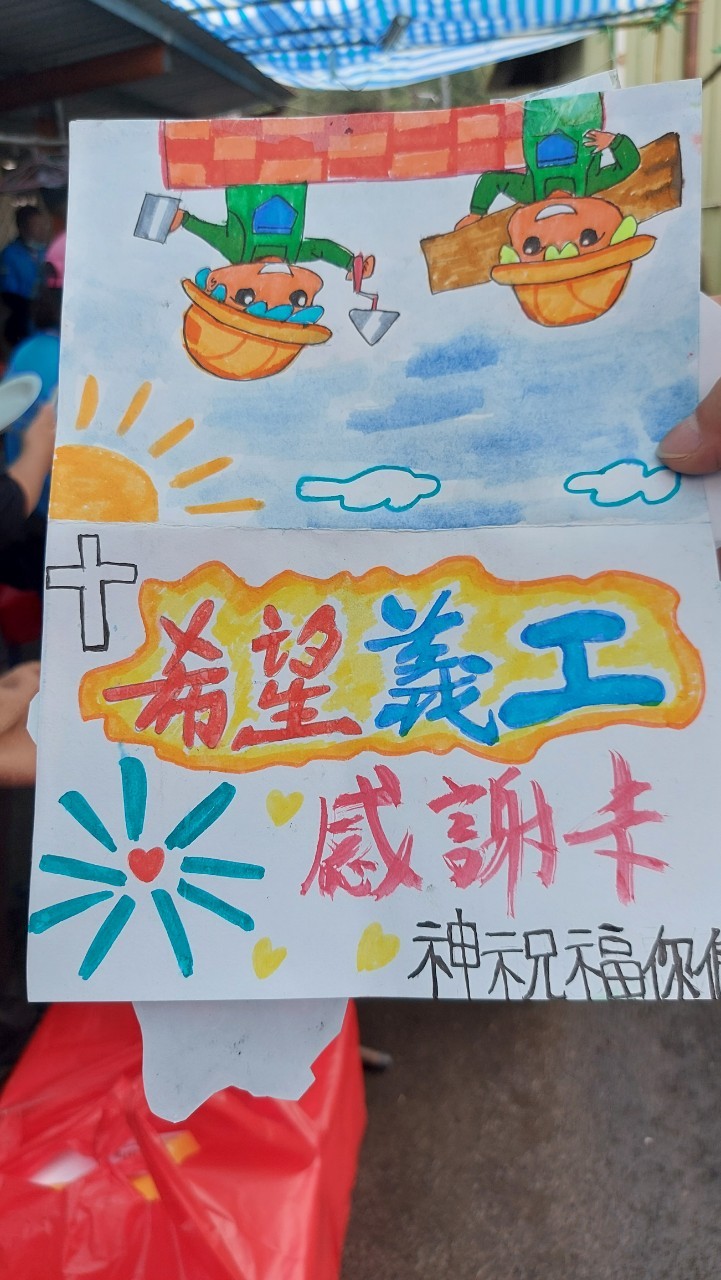 希望義工
感謝卡
神祝福你們